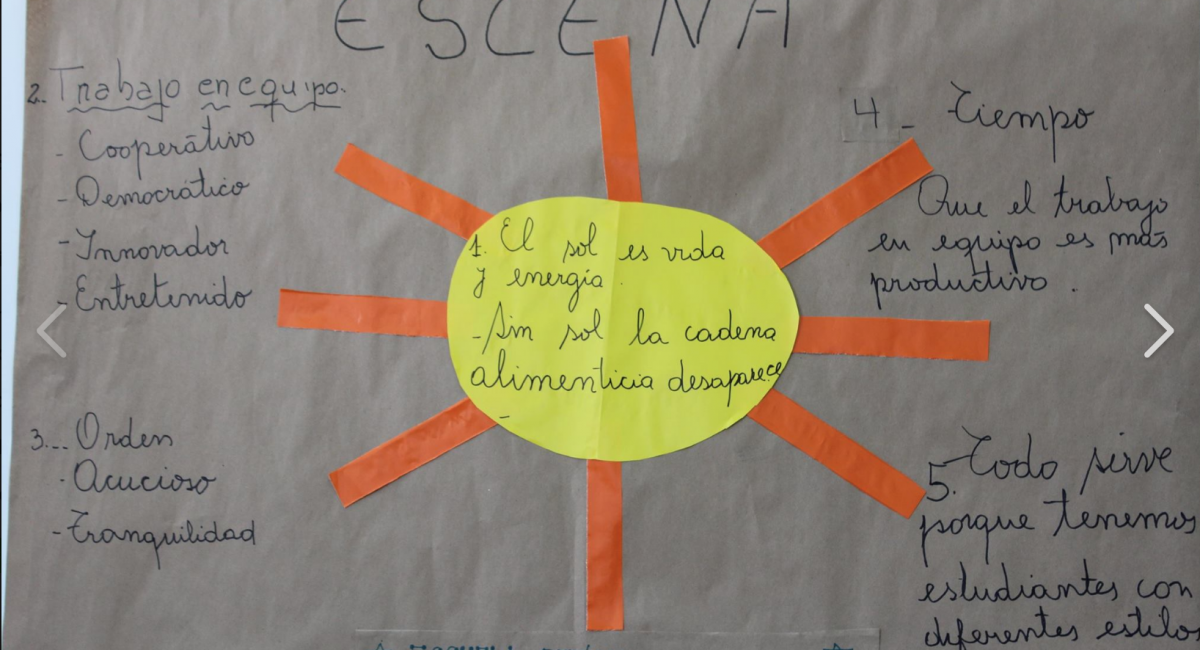 ESCENA
2.. Trabajo en equipo.
- Cooperativo
- Democrático
- Innovador
- Entretenido
3... Orden
. Acucioso
- Tranquilidad
1. El sol es vida
y energía.
- Sin sol la cadena
alimenticia desaparece
-
4 - Tiempo
Que el trabajo
en equipo es más
productivo.
5. Todo sirve
porque tenemos
estudiantes con
diferentes estilos